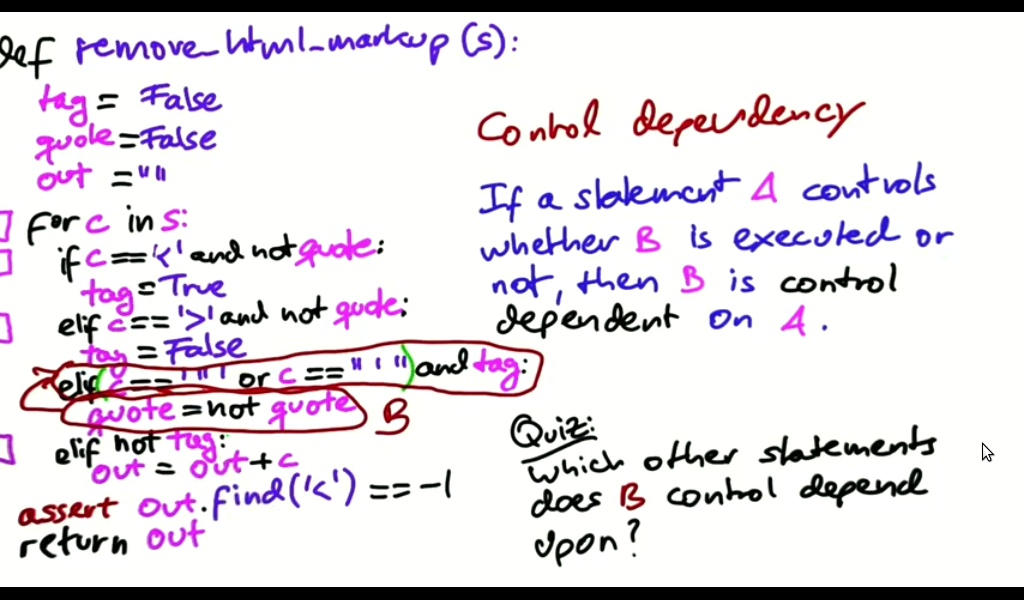 def remove_html_markup (s):
tag = False
quote = False
out = ""
for c in s:
if c == '<' and not quote:
tag = True
elif c == '>' and not quote:
tag = False
elif (c == '"' or c == "'") and tag:
quote = not quote
B
elif not tag:
out = out + c
assert out.find('<') == -1
return out
Control dependency
If a statement A controls
whether B is executed or
not, then B is control
dependent on A.
Quiz:
Which other statements
does B control depend
upon?